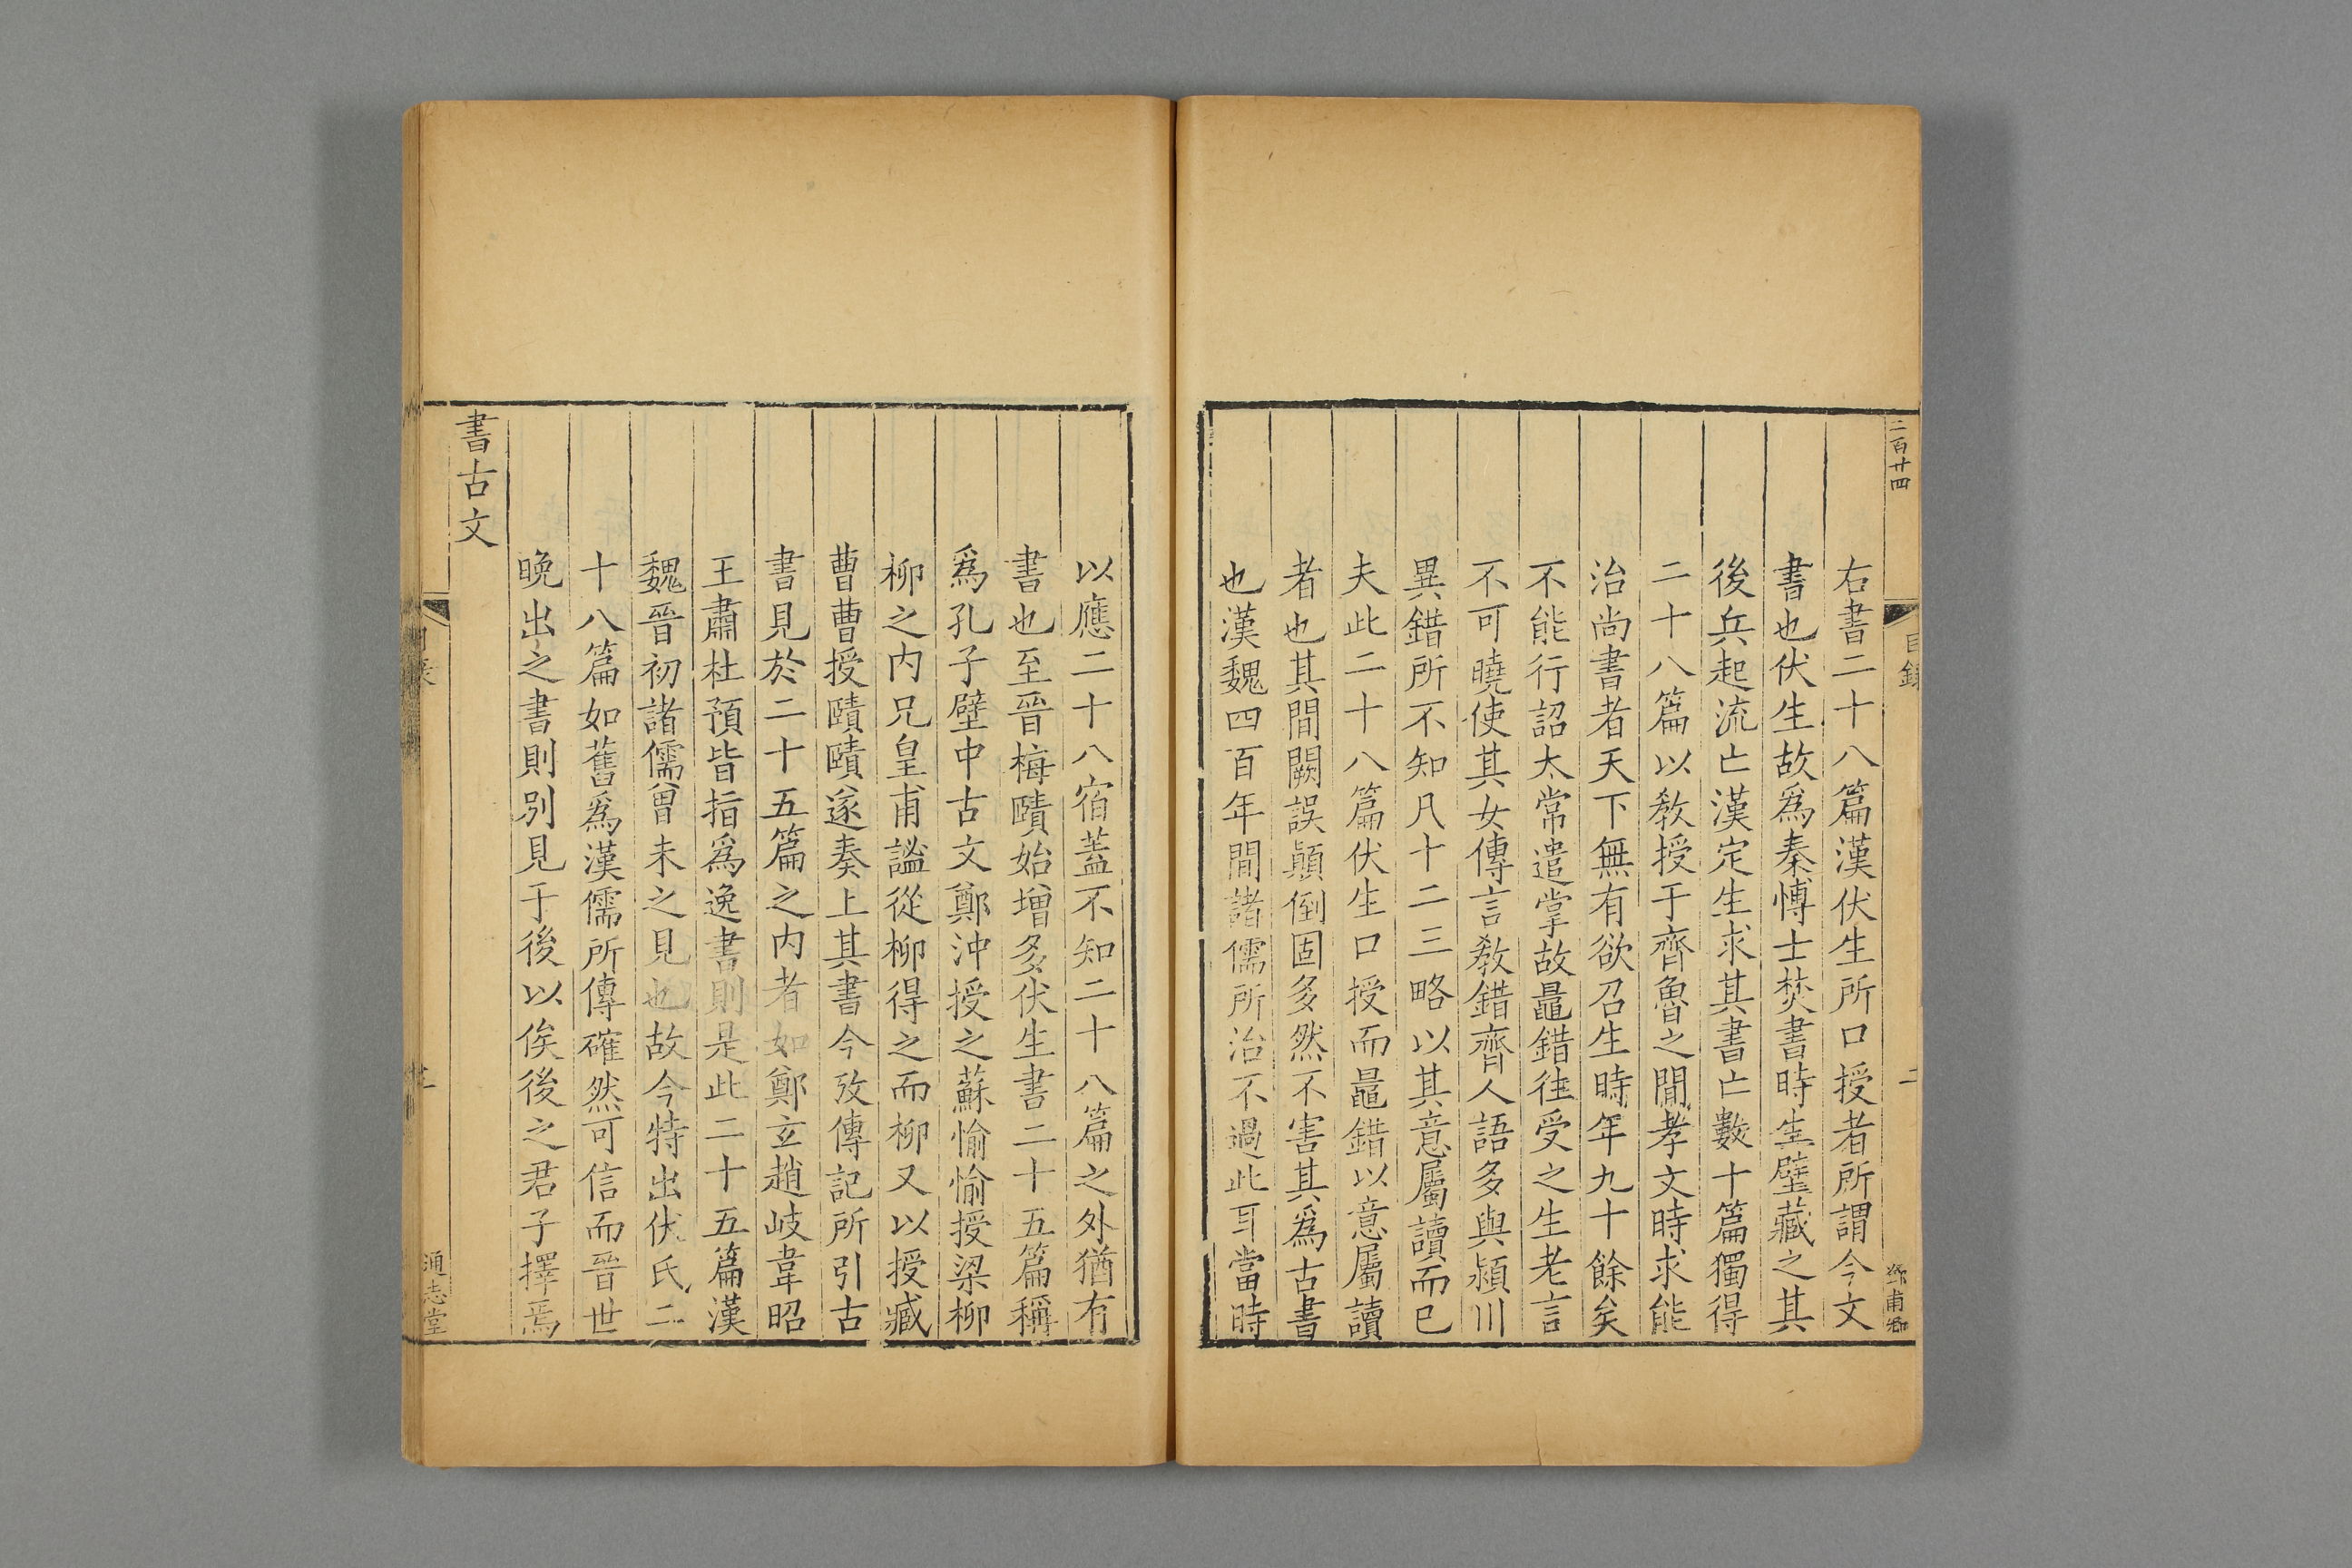 二百廿四
目錄
二
鄧甫卿
右書二十八篇漢伏生所口授者所謂今文
書也伏生故爲秦愽士焚書時生壁藏之其
後兵起流亡漢定生求其書亡數十篇獨得
二十八篇以敎授于齊魯之閒孝文時求能
治尚書者天下無有欲召生時年九十餘矣
不能行詔太常遣掌故鼂錯往受之生老言
不可曉使其女傳言敎錯齊人語多與潁川
異錯所不知凡十二三略以其意屬讀而已
夫此二十八篇伏生口授而鼂錯以意屬讀
者也其間闕誤顚倒固多然不害其爲古書
也漢魏四百年間諸儒所治不過此耳當時
以應二十八宿蓋不知二十八篇之外猶有
書也至晉梅賾始增多伏生書二十五篇稱
爲孔子壁中古文鄭沖授之蘇愉愉授梁柳
柳之内兄皇甫謐從柳得之而柳又以授臧
曹曹授賾賾遂奏上其書今攷傳記所引古
書見於二十五篇之内者如鄭玄趙岐韋昭
王肅杜預皆指爲逸書則是此二十五篇漢
魏晉初諸儒曾未之見也故今特出伏氏二
十八篇如舊爲漢儒所傳確然可信而晉世
晚出之書則別見于後以俟後之君子擇焉
書古文
通志堂